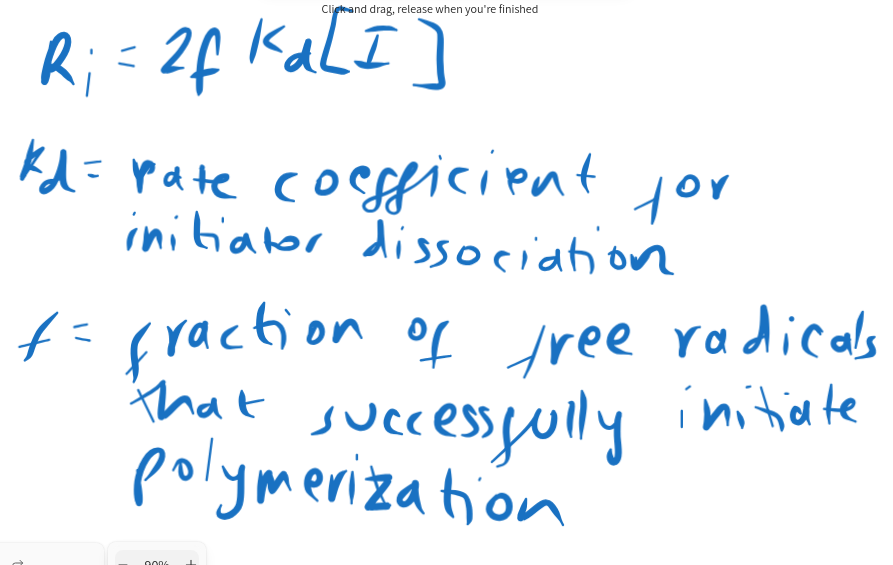 Click and drag, release when you're finished
Ri = 2f Kd[I]
Kd = rate coefficient for
initiator dissociation
f = fraction of free radicals
that successfully initiate
polymerization
90%